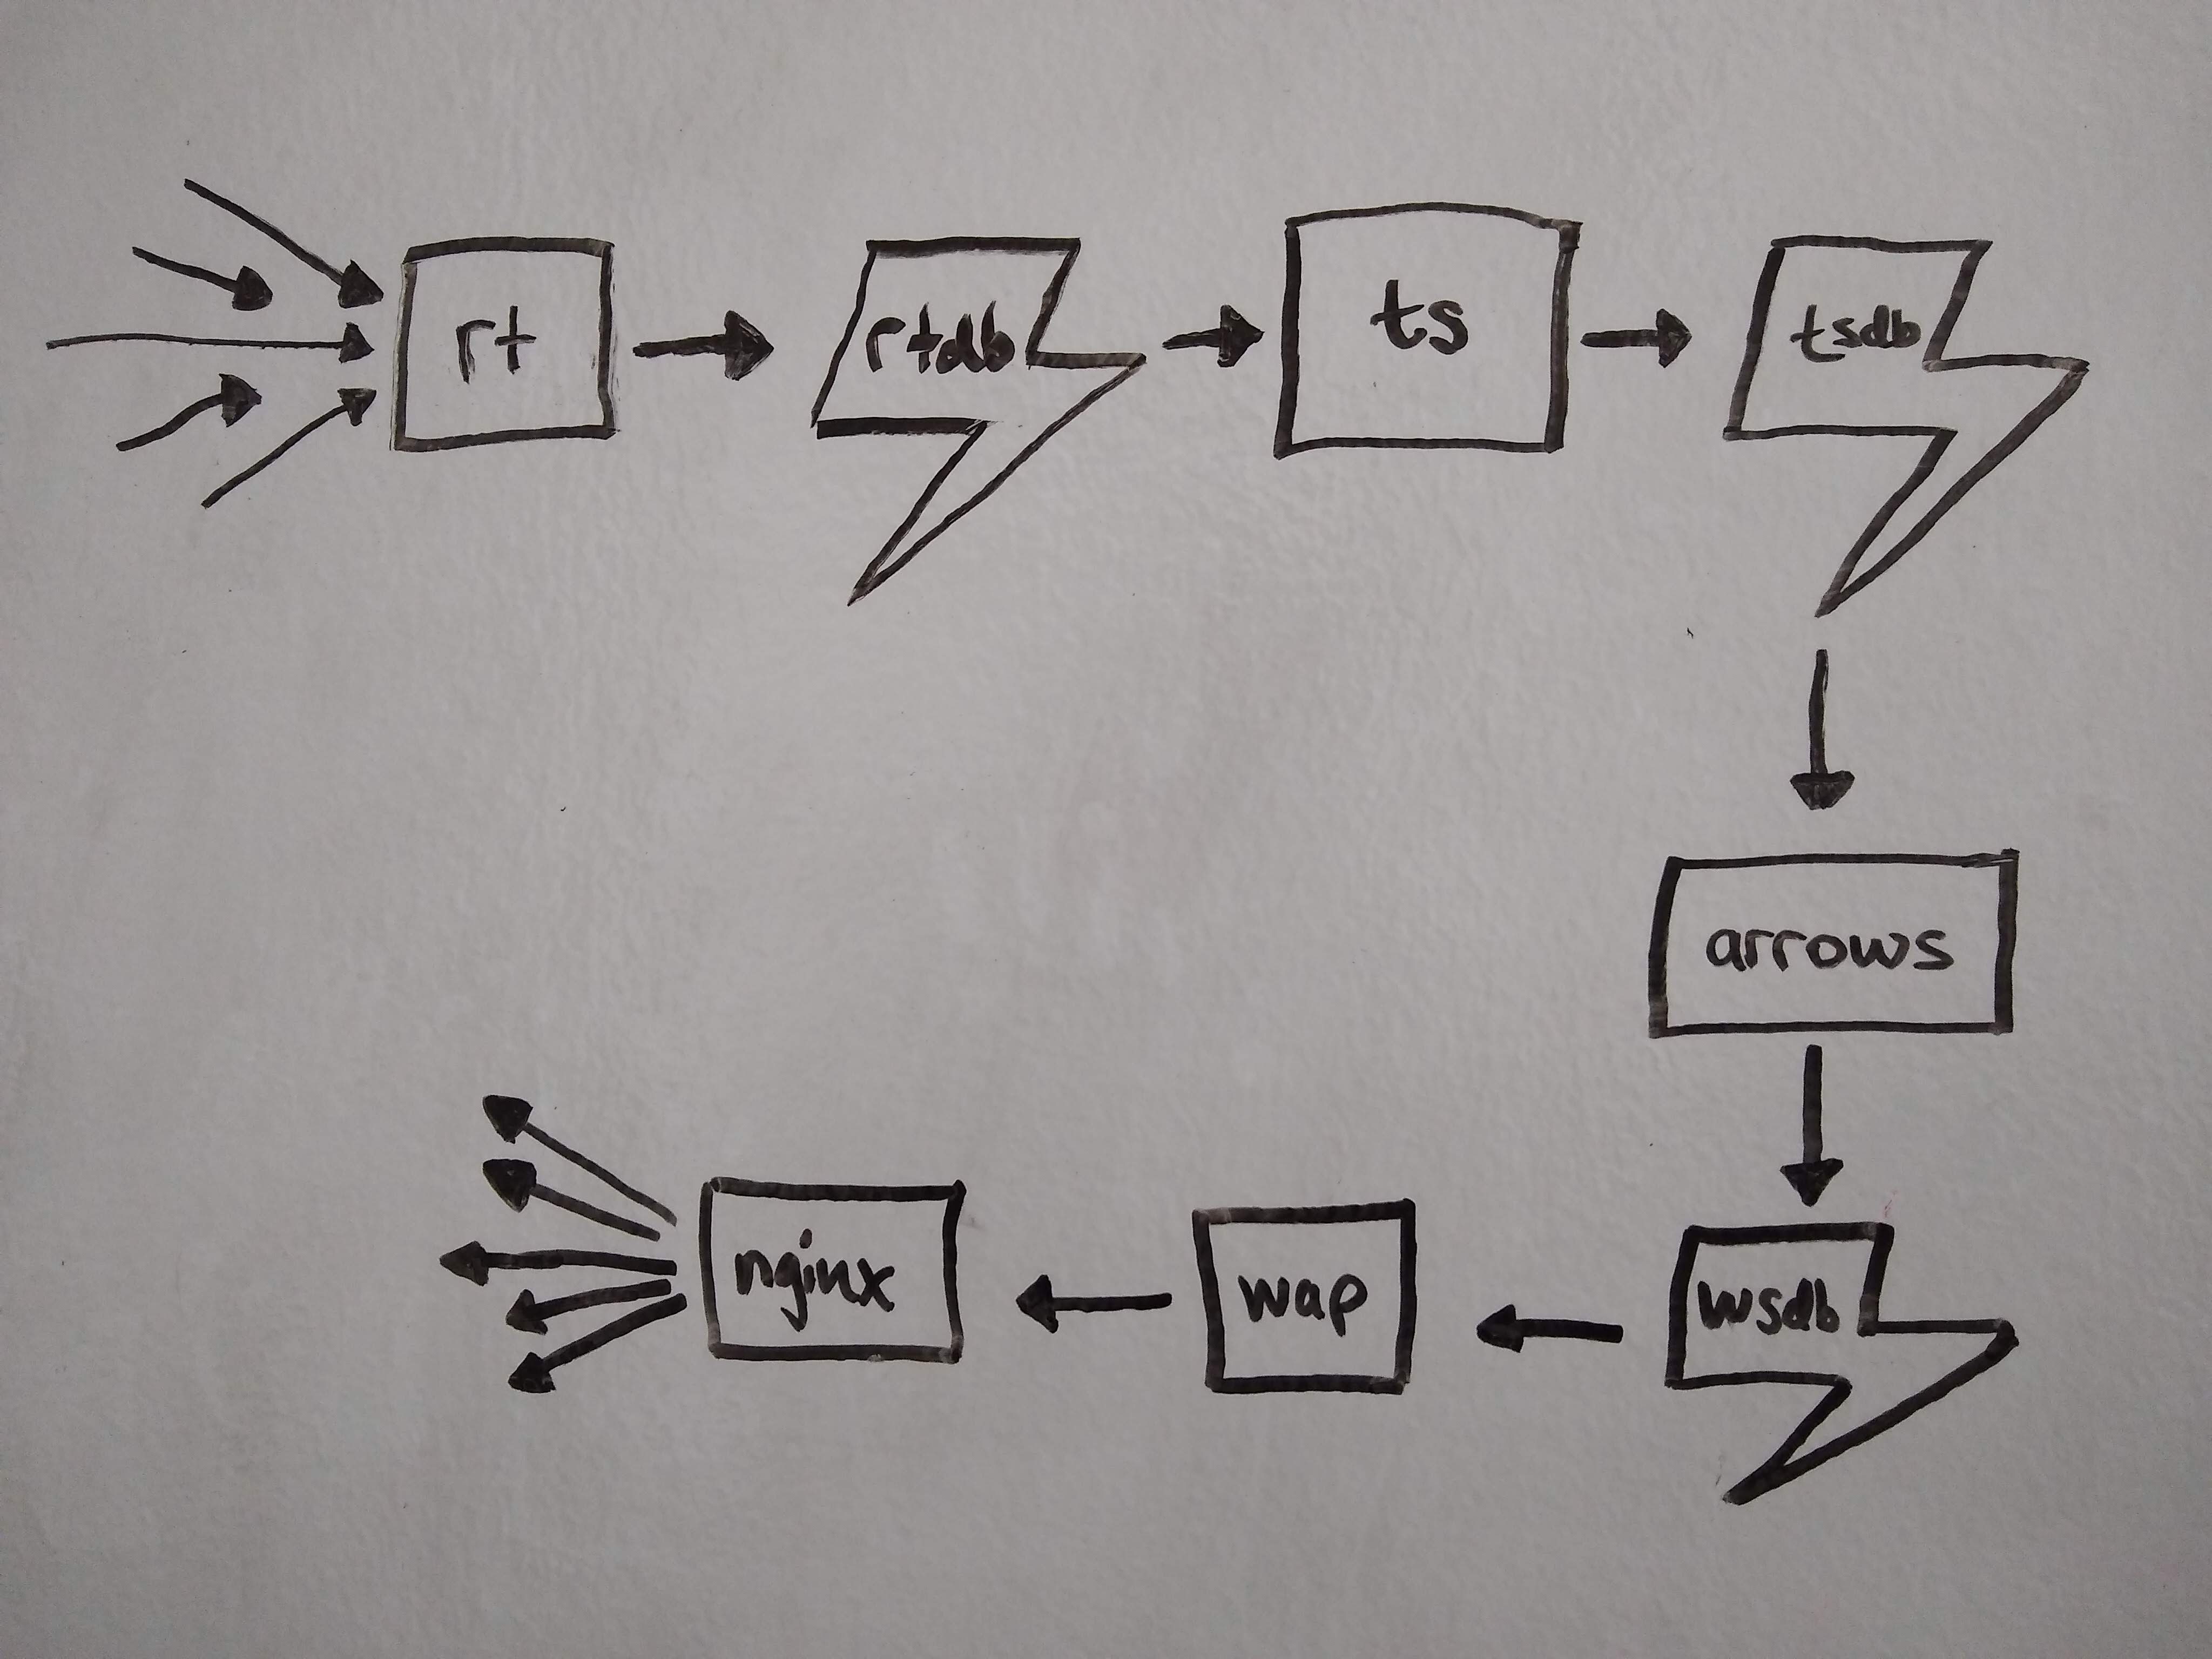 rt
rtdb
ts
tsdb
arrows
wsdb
wap
nginx